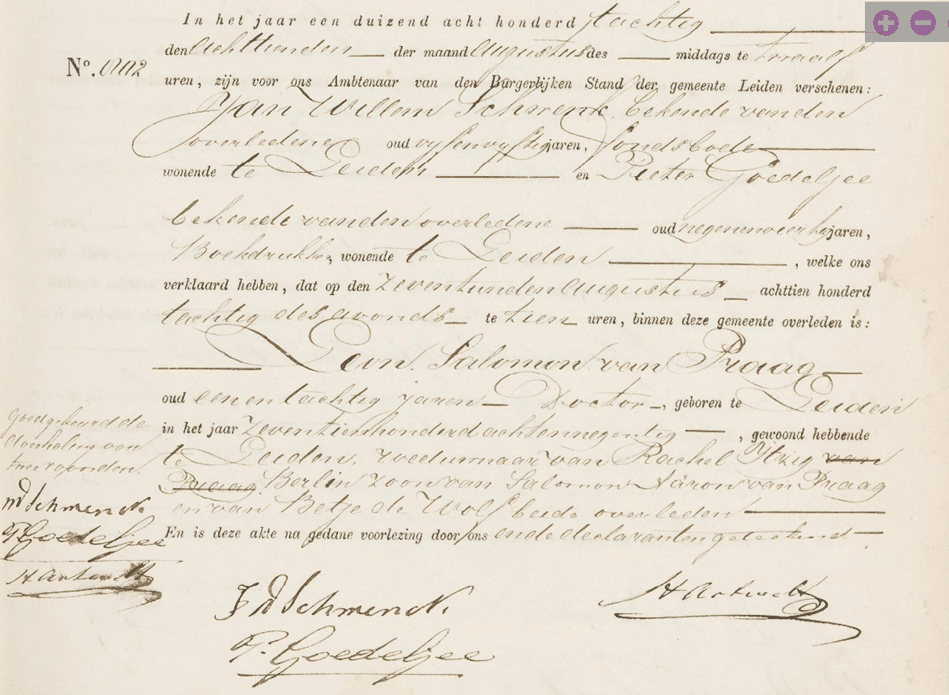 In het jaar een duizend acht honderd tachtig
den achttienden der maand Augustus des middags te twaalf
No. 1002
uren, zijn voor ons Ambtenaar van den Burgerlijken Stand der gemeente Leiden verschenen:
Jan Willem Schmenk, bekende van den
overledene oud vyfenvyftig jaren, fondsbode
wonende te Leiden en Pieter Goedeljee
bekende van den overledene oud negenenveertig jaren,
Boekdrukker, wonende te Leiden, welke ons
verklaard hebben, dat op den Zeventienden Augustus achttien honderd
tachtig des avonds te tien uren, binnen deze gemeente overleden is:
Leon. Salomon van Praag
oud eenentachtig jaren Doctor, geboren te Leiden
in het jaar Zeventienhonderdachtennegentig, gewoond hebbende
te Leiden, weduwnaar van Rachel Itzig van
Praag Berlin zoon van Salomon Aaron van Praag
en van Betje de Wolf beide overleden
En is deze akte na gedane voorlezing door ons en de declaranten geteekend
Goedgekeurd de
doorhaling van
twee woorden.
Schmenck
P. Goedeljee
Schmenck
P. Goedeljee